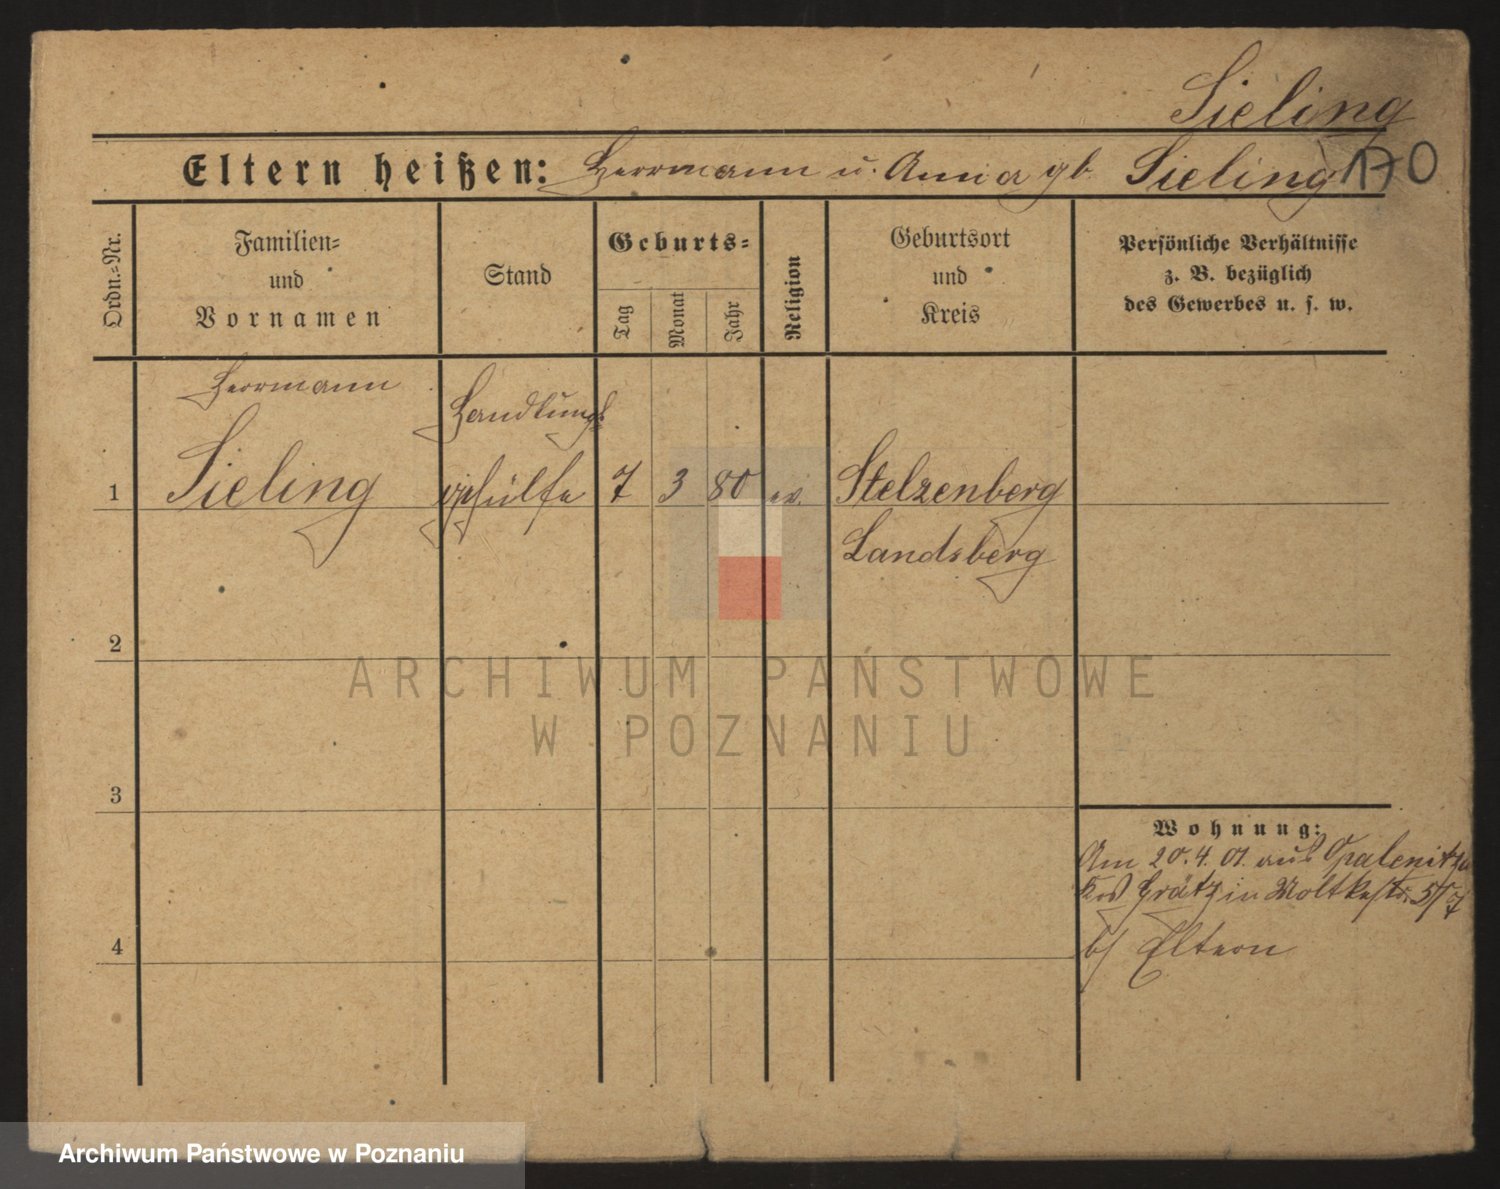 Sieling
Eltern heißen: Herrmann u. Anna gb. Sieling 170
Ordn.=Nr.
Familien=
und
Vornamen
Stand
Geburts=
Tag
Monat
Jahr
Religion
Geburtsort
und
Kreis
Persönliche Verhältnisse
z. B. bezüglich
des Gewerbes u. s. w.
Herrmann
Handlungs
1 Sieling gehülfe 7 3 80 ev. Stelzenberg
Landsberg
2
3
4
Wohnung:
Am 20.4.01. aus Opalenitza
Krs Grätz in Moltkestr. 5/7
b/ Eltern
ARCHIWUM PAŃSTWOWE
W POZNANIU
Archiwum Państwowe w Poznaniu